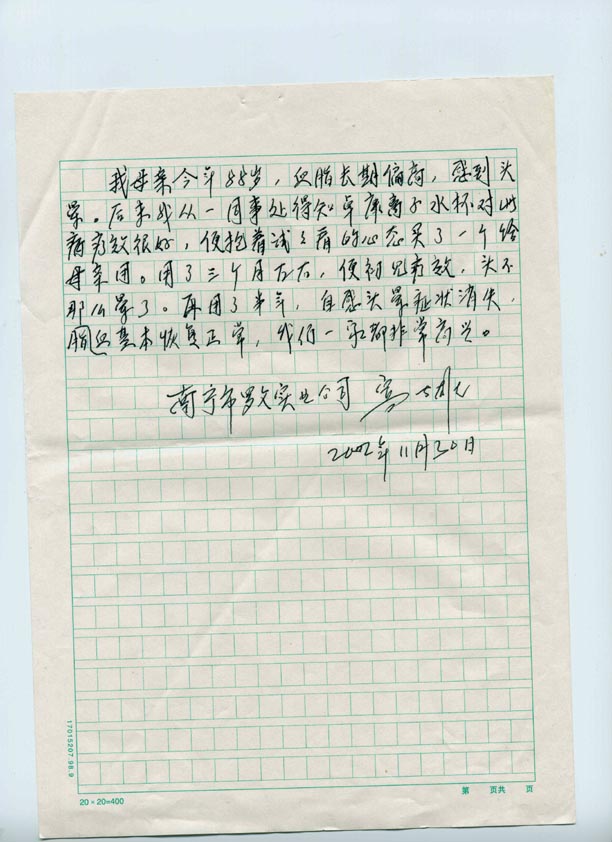 我母亲今年88岁，血脂长期偏高，感到头
晕。后来我从一同事处得知卓康离子水杯对此
病疗效很好，便抱着试试看的心态买了一个给
母亲用。用了三个月左右，便初见疗效，头不
那么晕了。再用了半年，自感头晕症状消失，
脂血基本恢复正常，我们一家都非常高兴。
南宁市罗文实业公司
2002年11月30日
17015207.98.9
20×20=400
第 页共 页